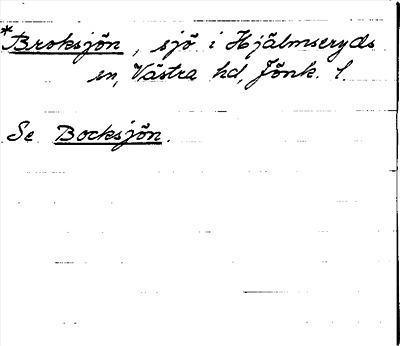 *Broksjön, sjö i Hjälmseryds
sn, Västra hd, Jönk. l.
Se Bocksjön.